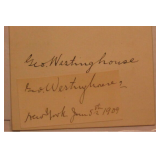 Geo Westinghouse
Geo. Westinghouse
New York Jan 5th 1909